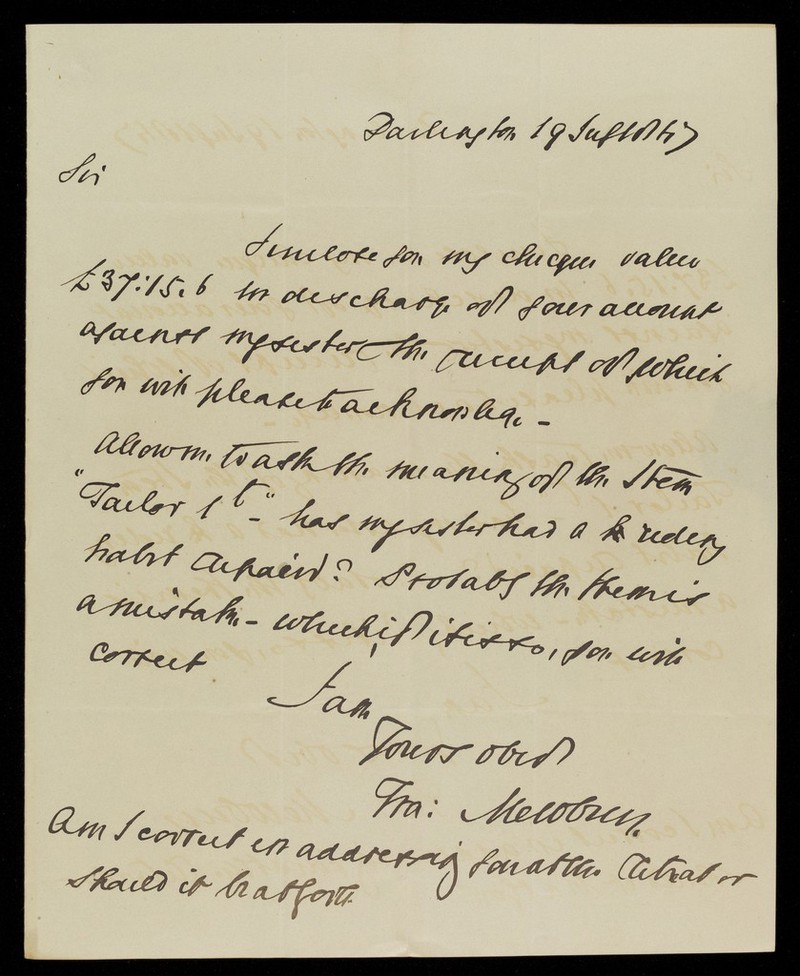 Darlington 19 July 1867
Sir
I enclose you my cheque value
£37:15.6 in discharge of your account
against my sister the receipt of which
you will please to acknowledge -
Allow me to ask the meaning of the Item
"Tailor 1t" - has my sister had a riding
habit repaired? Probably the Item is
a mistake - which, if it is so, you will
correct
I am
Yours obed
Fra: Mewburn
Am I correct in addressing you at the Retreat or
should it be at York